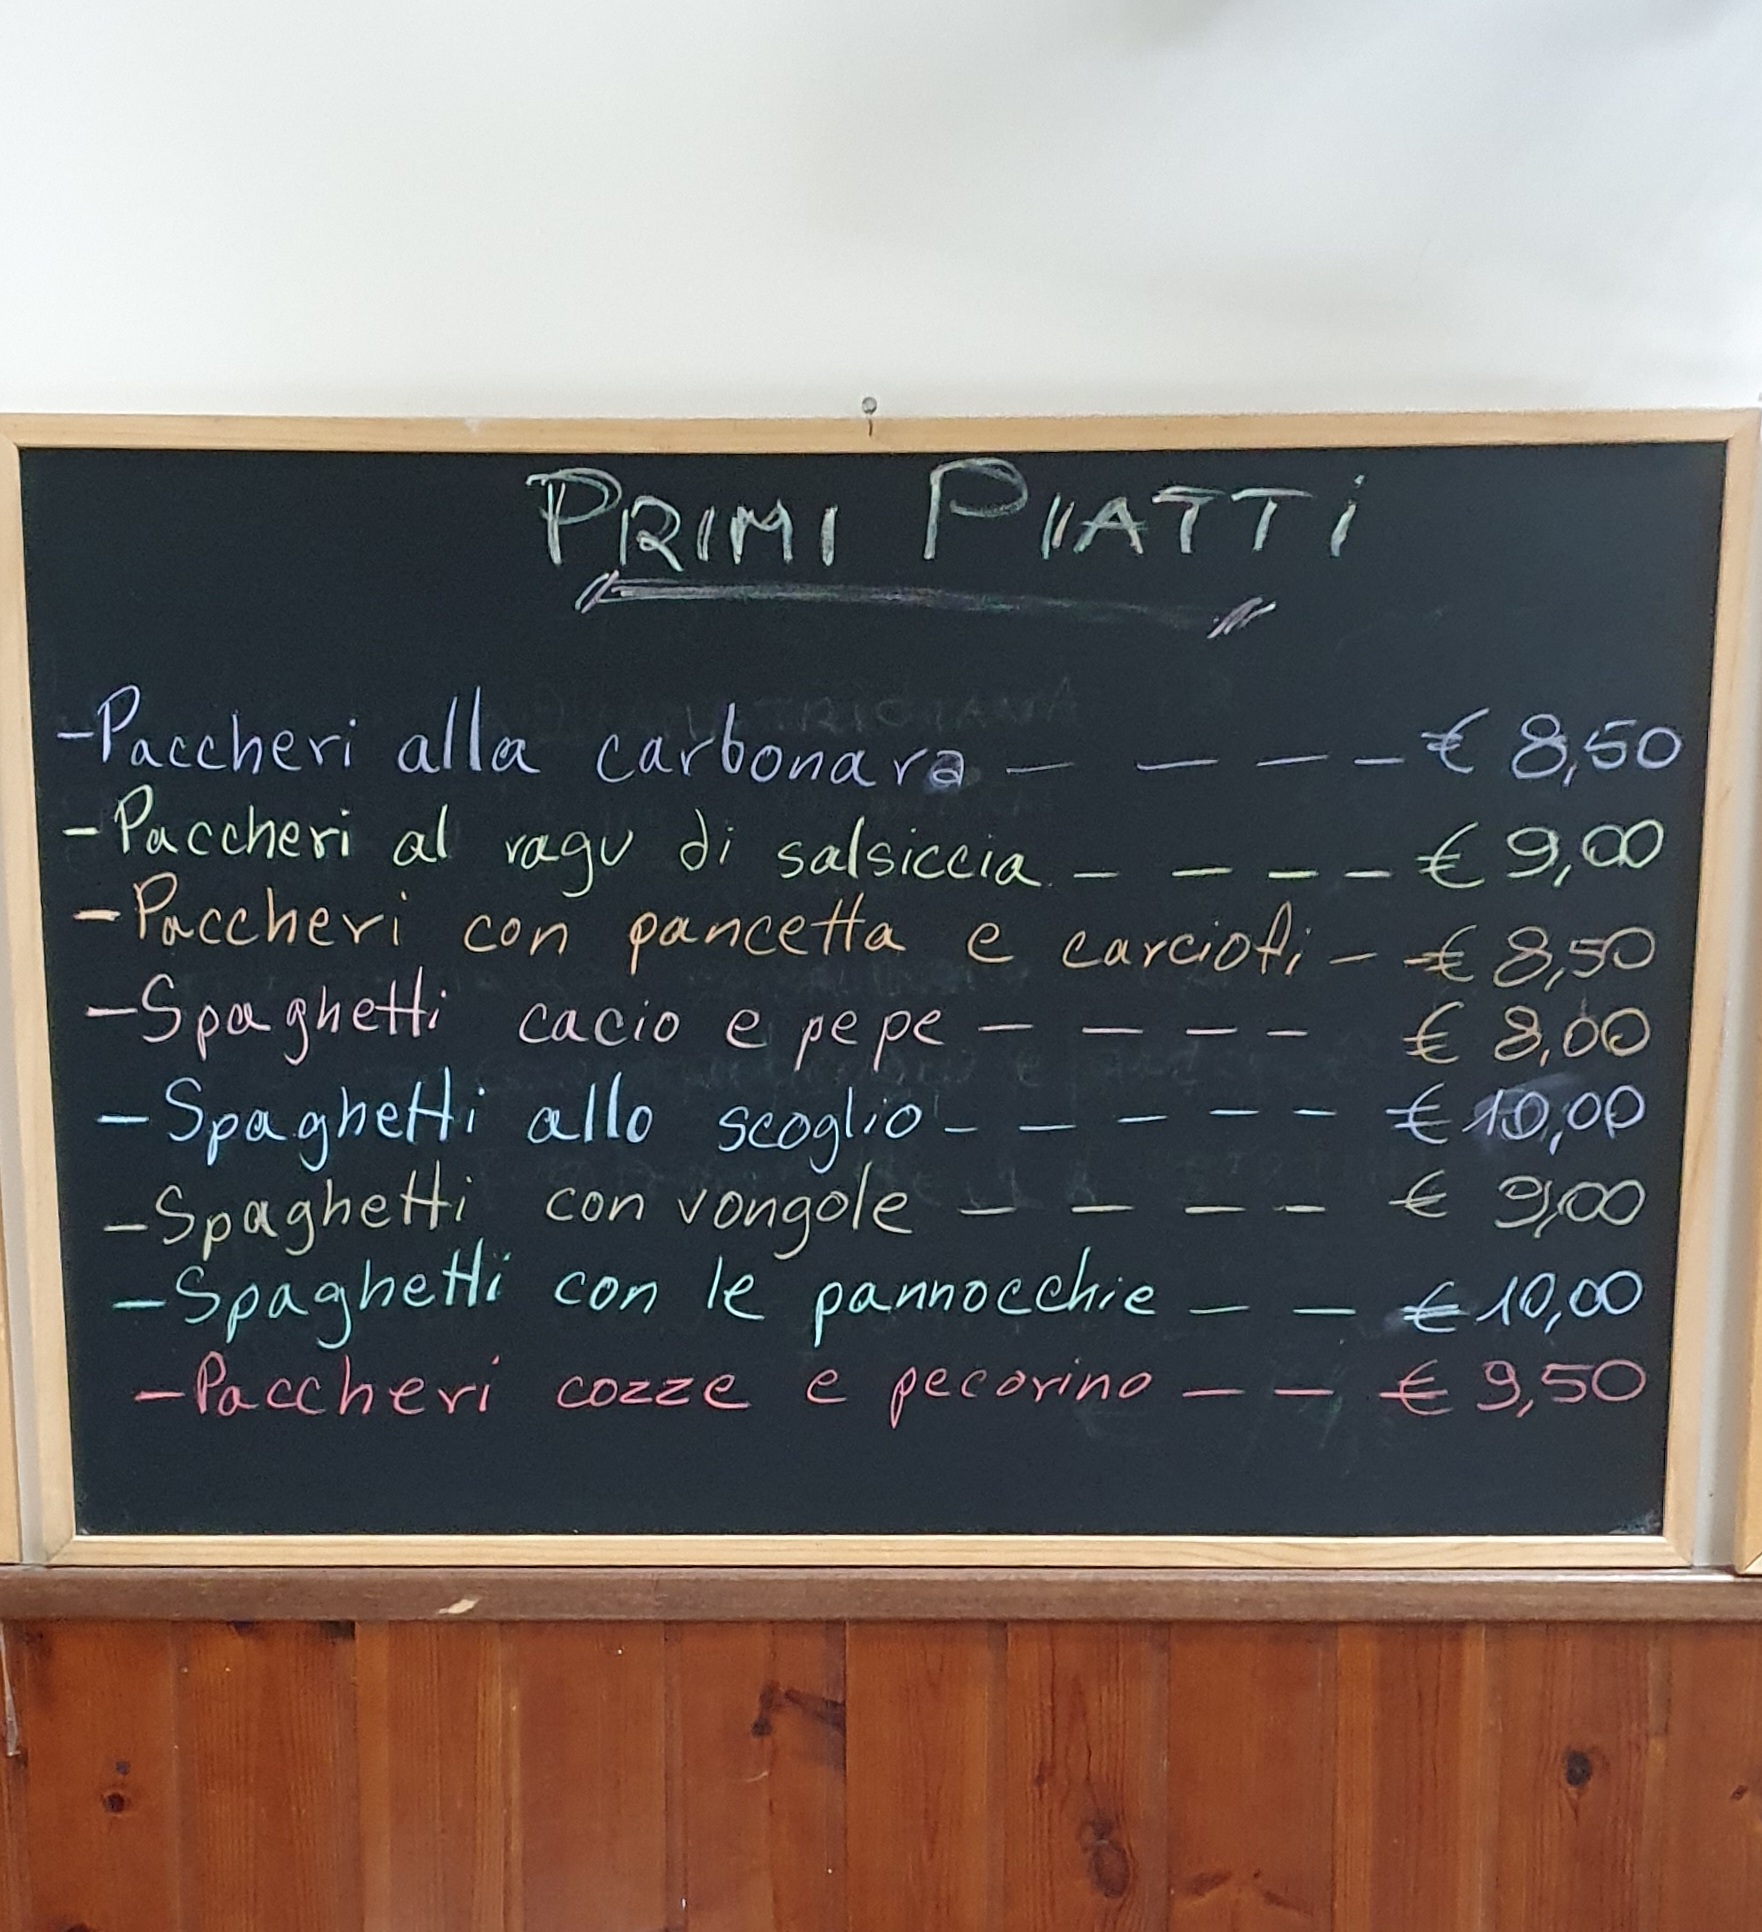 PRIMI PIATTi
-Paccheri alla carbonara - - - - € 8,50
-Paccheri al ragu di salsiccia - - - - € 9,00
-Paccheri con pancetta e carciofi - - € 8,50
-Spaghetti cacio e pepe - - - - € 8,00
-Spaghetti allo scoglio - - - - - € 10,00
-Spaghetti con vongole - - - - € 9,00
-Spaghetti con le pannocchie - - € 10,00
-Paccheri cozze e pecorino - - € 9,50